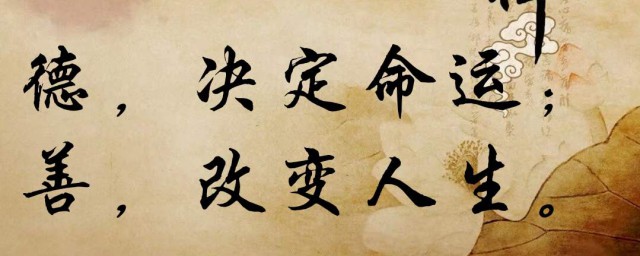 德，决定命运；
善，改变人生。